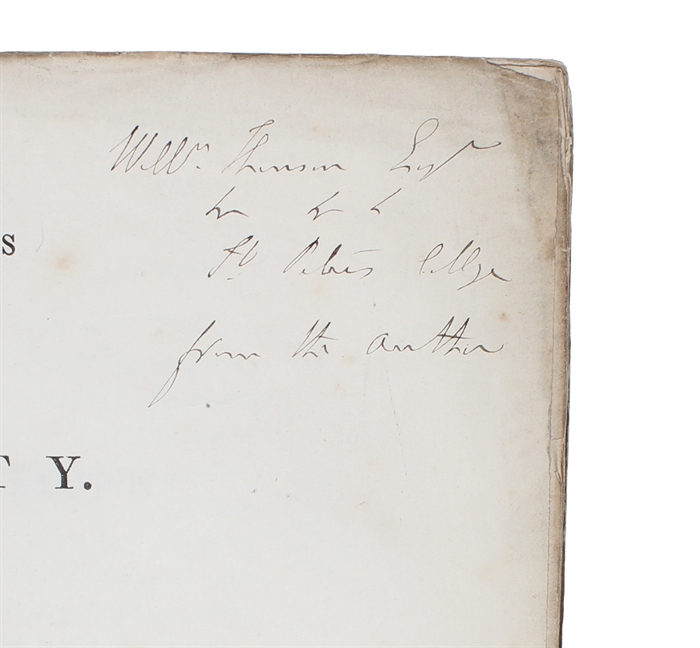 Willm. Thomson Esqr
&c &c &c
S
St Peter's College
from the author
T Y.